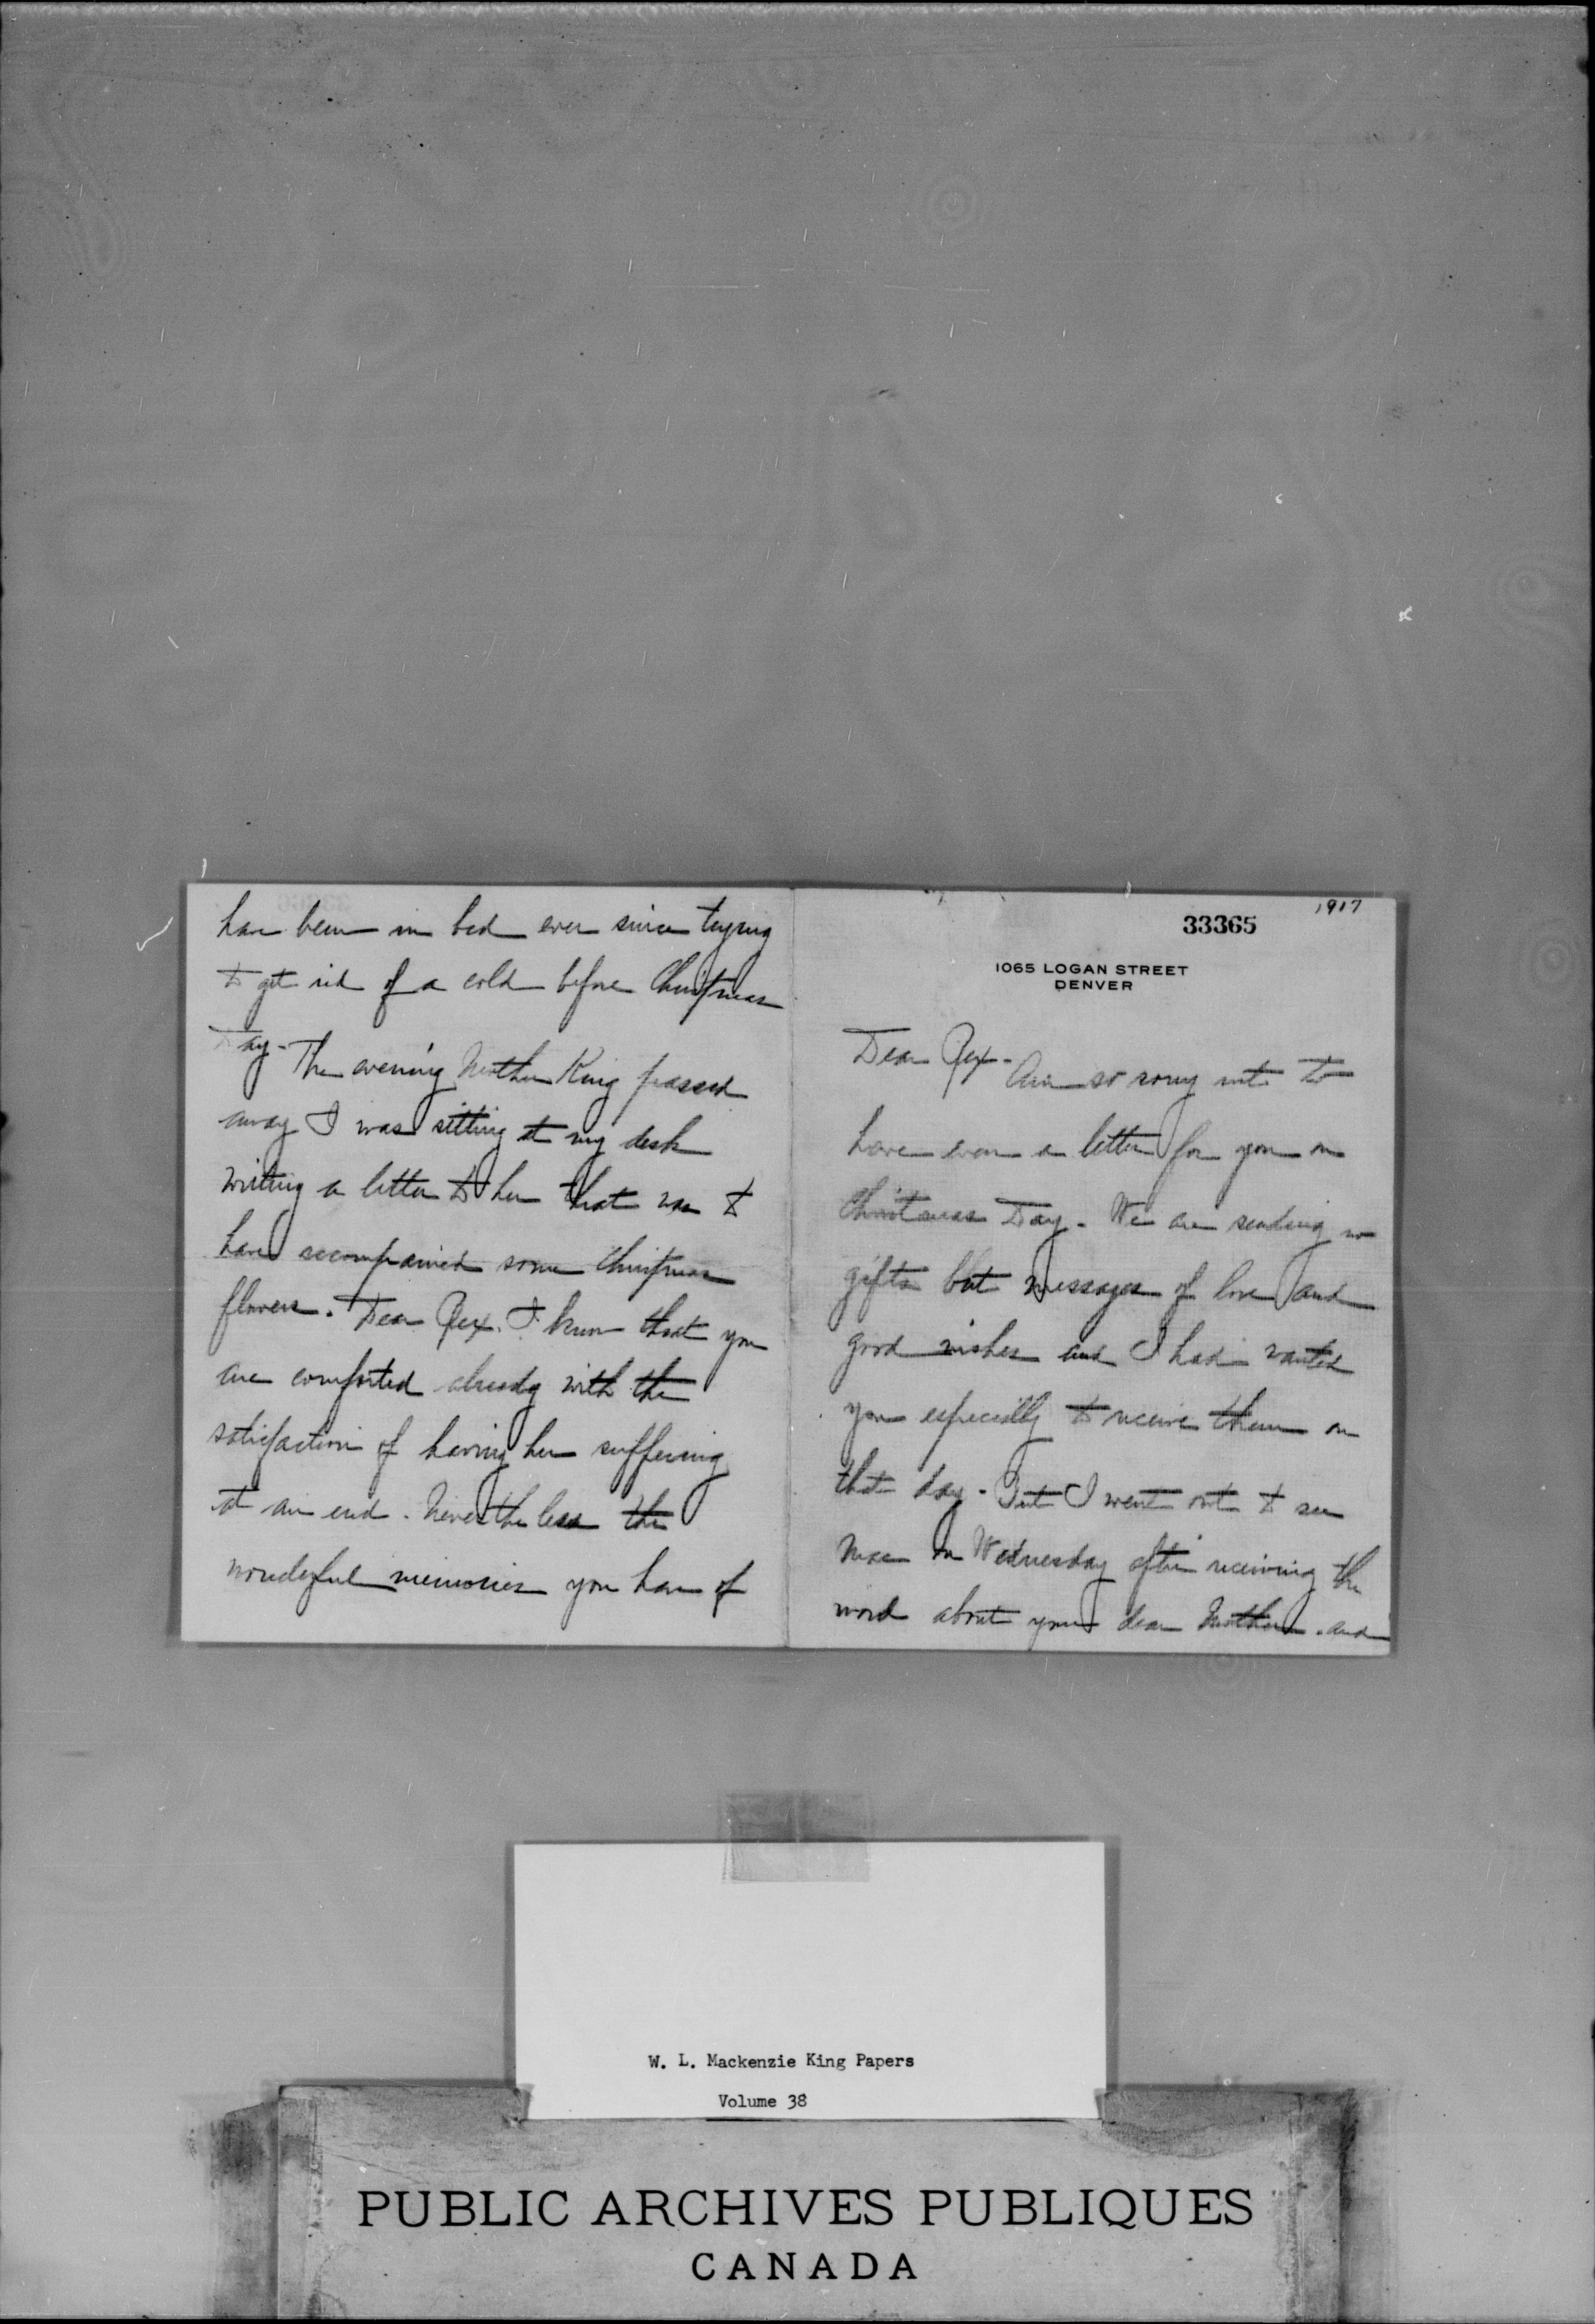 1917
33365
1065 LOGAN STREET
DENVER
Dear Rex -
Am so sorry not to
have even a letter for you on
Christmas Day - We are sending no
gifts but messages of love and
good wishes and I had wanted
you especially to receive them on
that day - But I went out to see
Mac on Wednesday after receiving the
word about your dear Mother - and
have been in bed ever since trying
to get rid of a cold before Christmas
Day - The evening Mother King passed
away I was sitting at my desk
writing a letter to her that was to
have accompanied some Christmas
flowers. Dear Rex. I know that you
are comforted already with the
satisfaction of having her suffering
at an end. Nevertheless the
wonderful memories you have of
W. L. Mackenzie King Papers
Volume 38
PUBLIC ARCHIVES PUBLIQUES
CANADA